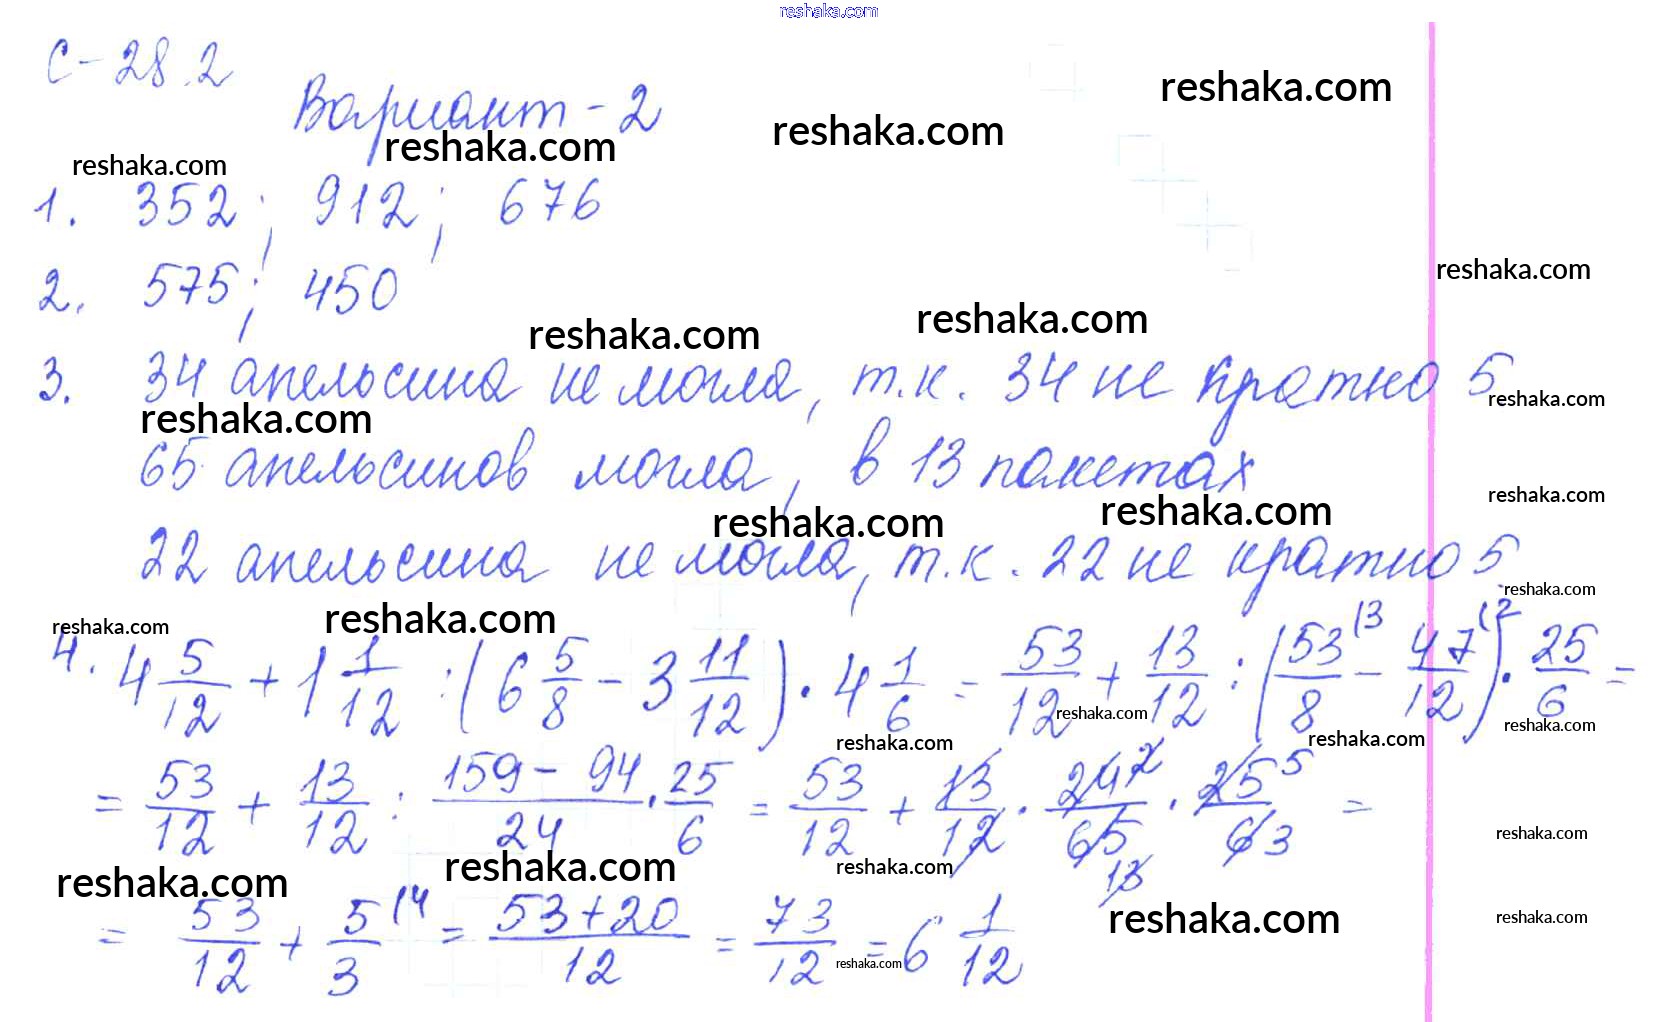 reshaka.com
С-28.2
Вариант-2
reshaka.com
reshaka.com
reshaka.com
reshaka.com
1. 352; 912; 676
2. 575; 450
reshaka.com
reshaka.com
reshaka.com
3. 34 апельсина не могла, т.к. 34 не кратно 5
reshaka.com
reshaka.com
65 апельсинов могла, в 13 пакетах
reshaka.com
reshaka.com
reshaka.com
22 апельсина не могла, т.к. 22 не кратно 5
reshaka.com
reshaka.com
reshaka.com
4. 4 5/12 + 1 1/12 : (6 5/8 - 3 11/12) · 4 1/6 = 53/12 + 13/12 : (53/8 (3 - 47/12 (2) · 25/6 =
reshaka.com
reshaka.com
reshaka.com
reshaka.com
= 53/12 + 13/12 : 159 - 94/24 · 25/6 = 53/12 + 13/12 · 24 2/65 13 · 25 5/6 3 =
reshaka.com
reshaka.com
reshaka.com
reshaka.com
= 53/12 + 5/3 (4 = 53+20/12 = 73/12 = 6 1/12
reshaka.com
reshaka.com
reshaka.com